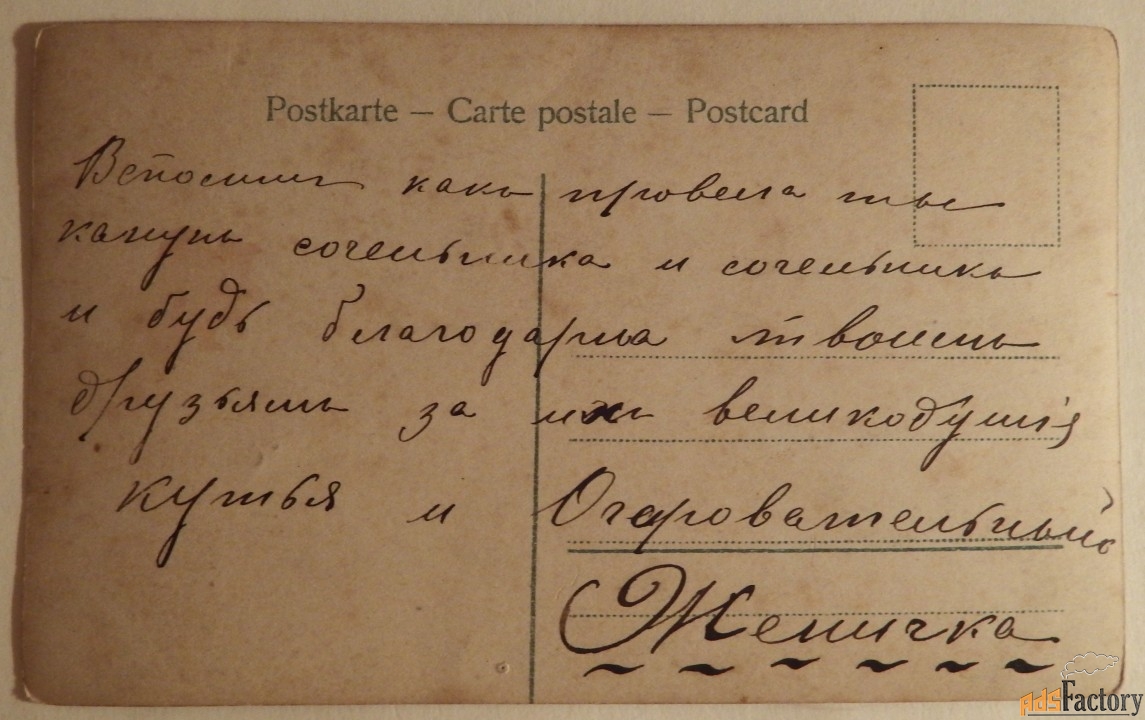 Postkarte — Carte postale — Postcard
Вспомни какъ провела ты
канунъ сочельника и сочельникъ
и будь благодарна твоимъ
друзьямъ за ихъ великодушія
кутья и Очаровательный
Женичка
AdsFactory